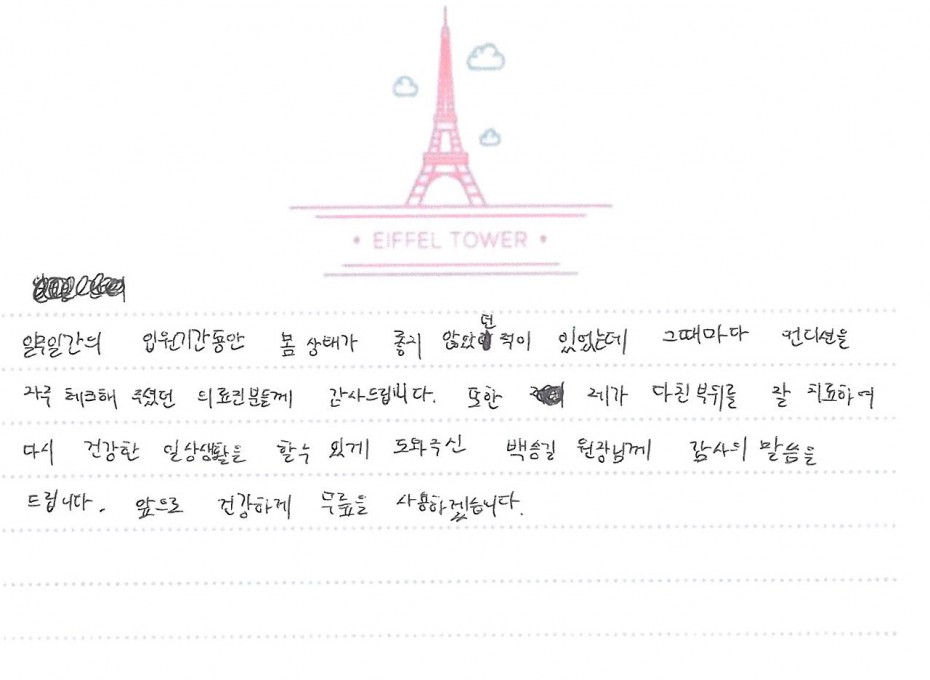 • EIFFEL TOWER •
일주일간의 입원기간동안 몸 상태가 좋지 않았던 적이 있었는데 그때마다 컨디션을
자주 체크해 주셨던 의료진분들께 감사드립니다. 또한 제가 다친부위를 잘 치료하여
다시 건강한 일상생활을 할수 있게 도와주신 백승길 원장님께 감사의 말씀을
드립니다. 앞으로 건강하게 무릎을 사용하겠습니다.